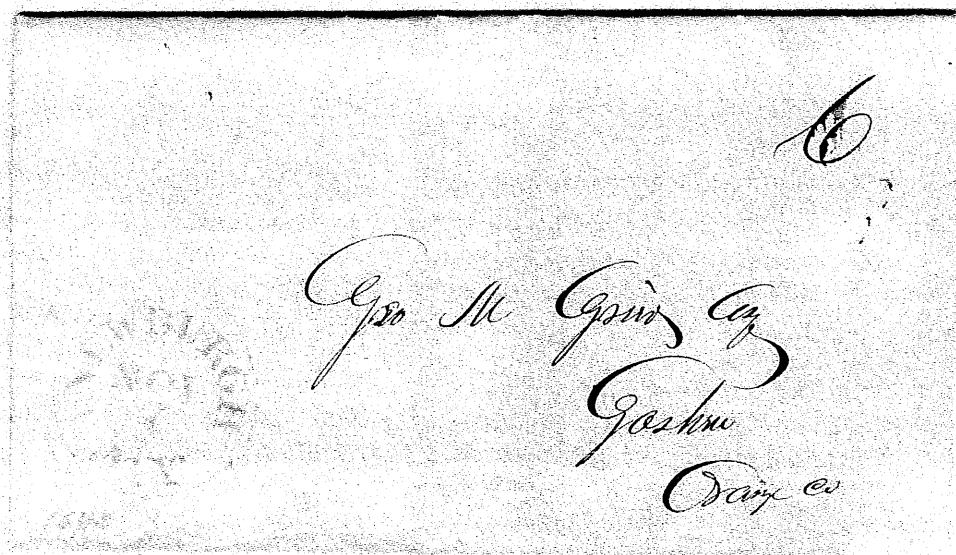 6
NOV
Geo M Grier Esq
Goshen
Orange Co